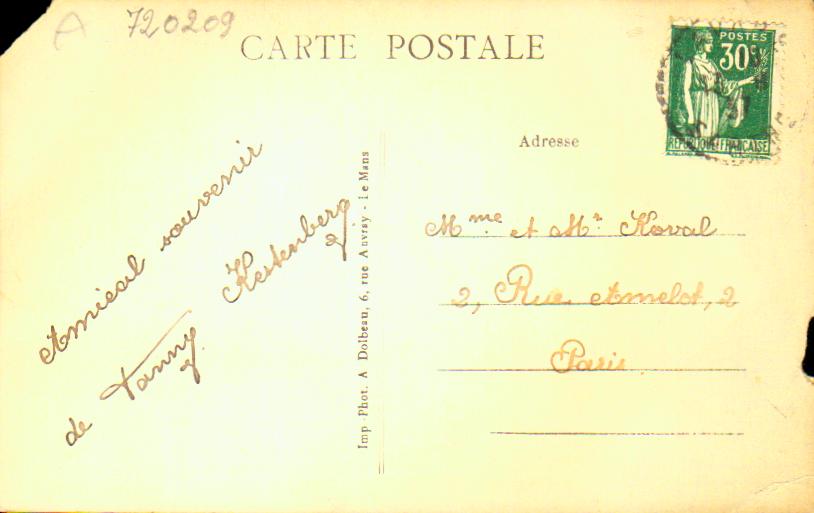 A 720209
CARTE POSTALE
POSTES
30c
REPUBLIQUE FRANÇAISE
Adresse
Amical souvenir
de Fanny Kestenberg
Imp-Phot. A Dolbeau, 6, rue Auvray - Le Mans
Mme et Mr Koval
2, Rue Amelot, 2
Paris